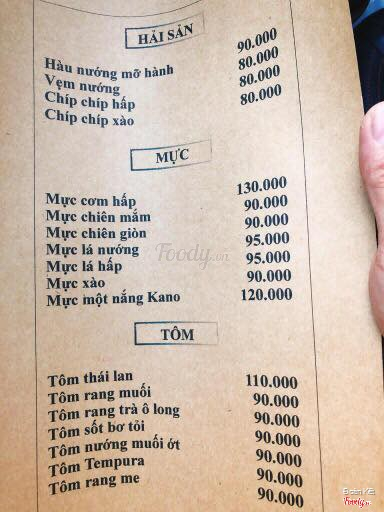 HẢI SẢN
Hàu nướng mỡ hành 90.000
Vẹm nướng 80.000
Chíp chíp hấp 80.000
Chíp chíp xào 80.000
MỰC
Mực cơm hấp 130.000
Mực chiên mắm 90.000
Mực chiên giòn 90.000
Mực lá nướng 95.000
Mực lá hấp 95.000
Mực xào 90.000
Mực một nắng Kano 120.000
Foody.vn
TÔM
Tôm thái lan 110.000
Tôm rang muối 90.000
Tôm rang trà ô long 90.000
Tôm sốt bơ tỏi 90.000
Tôm nướng muối ớt 90.000
Tôm Tempura 90.000
Tôm rang me 90.000
Foody.vn